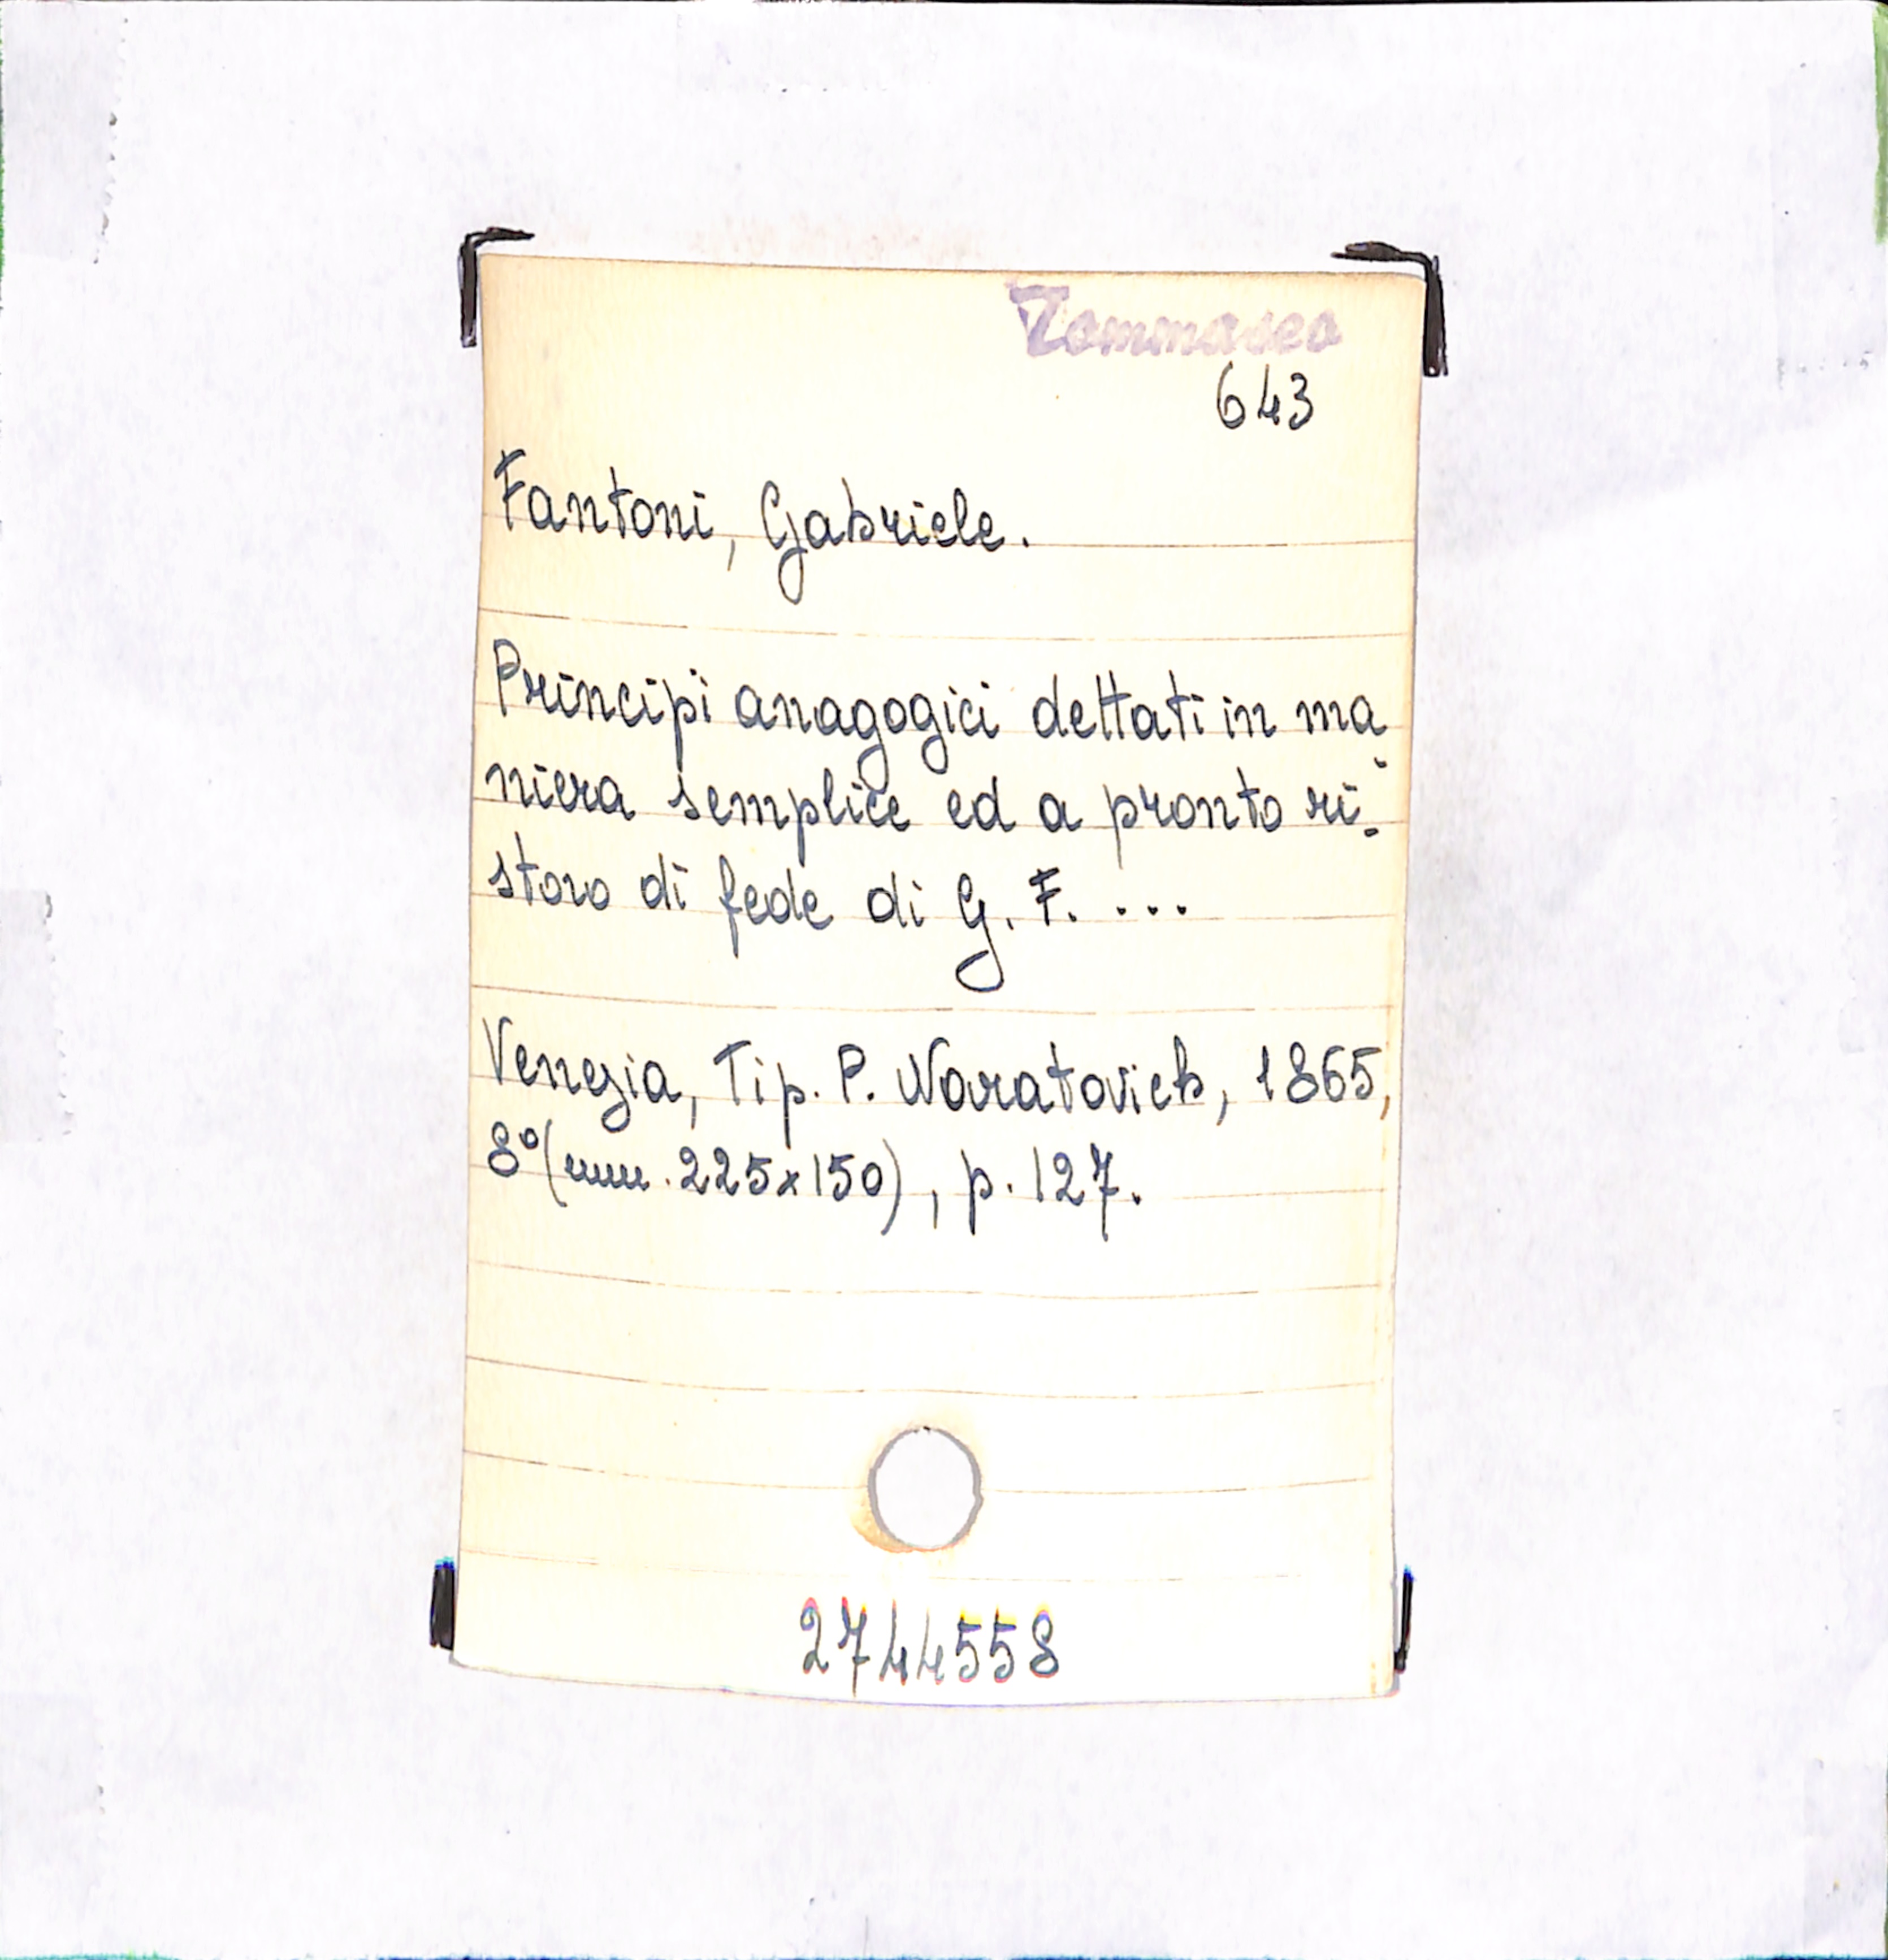 Tommaseo
643
Fantoni, Gabriele.
Principi anagogici dettati in ma-
niera semplice ed a pronto ri-
storo di fede di G. F. ...
Venezia, Tip. P. Naratovich, 1865,
8º (mm. 225x150), p. 127.
2744558